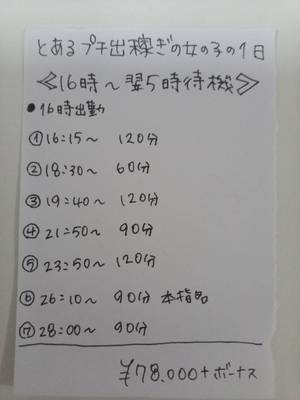 とあるプチ出稼ぎの女の子の1日
≪16時〜翌5時待機≫
●16時出勤
①16:15〜 120分
②18:30〜 60分
③19:40〜 120分
④21:50〜 90分
⑤23:50〜 120分
⑥26:10〜 90分 本指名
⑦28:00〜 90分
¥78.000+ボーナス